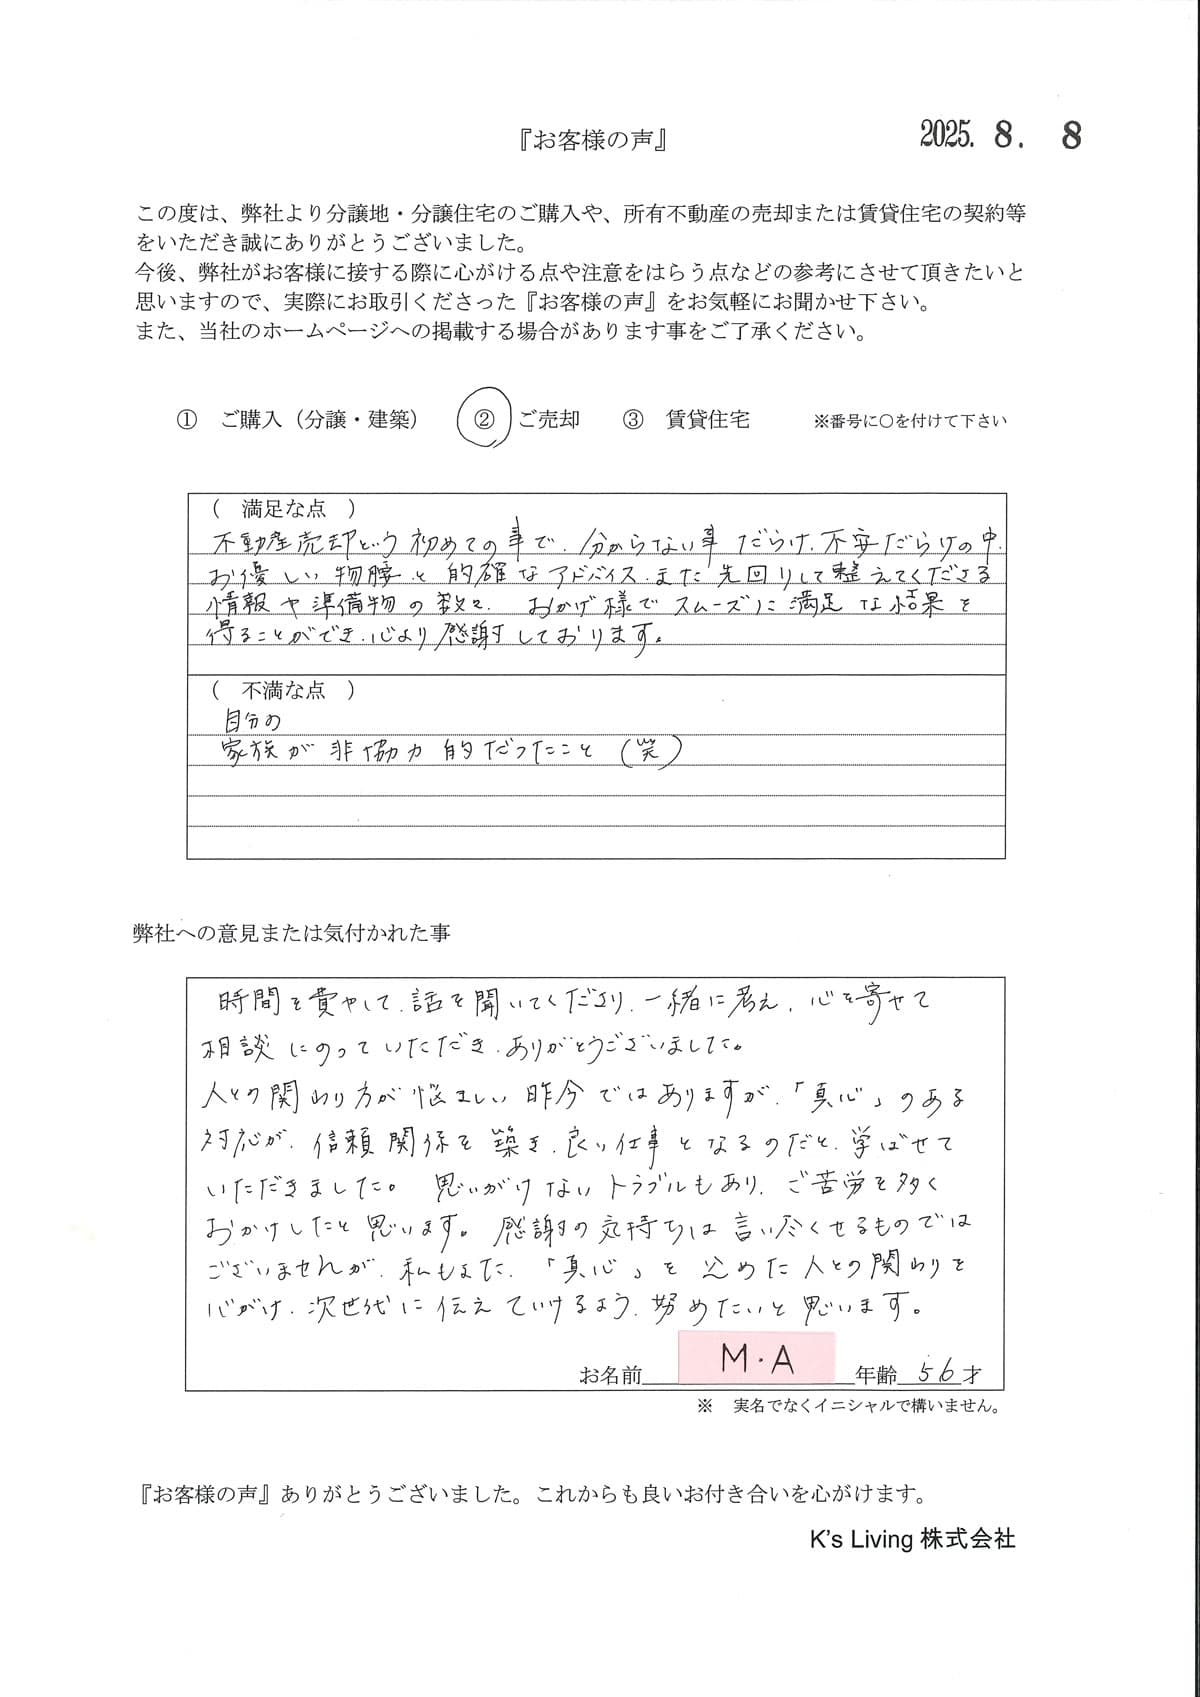 『お客様の声』
2025. 8. 8
この度は、弊社より分譲地・分譲住宅のご購入や、所有不動産の売却または賃貸住宅の契約等
をいただき誠にありがとうございました。
今後、弊社がお客様に接する際に心がける点や注意をはらう点などの参考にさせて頂きたいと
思いますので、実際にお取引くださった『お客様の声』をお気軽にお聞かせ下さい。
また、当社のホームページへの掲載する場合があります事をご了承ください。
① ご購入（分譲・建築） ② ご売却 ③ 賃貸住宅 ※番号に○を付けて下さい
（ 満足な点 ）
不動産売却という初めての事で、分からない事だらけ、不安だらけの中、
お優しい物腰と的確なアドバイス、また先回りして整えてくださる
情報や準備物の数々、おかげ様でスムーズに満足な結果を
得ることができ、心より感謝しております。
（ 不満な点 ）
自分の
家族が非協力的だったこと（笑）
弊社への意見または気付かれた事
時間を費やして、話を聞いてくださり、一緒に考え、心を寄せて
相談にのっていただき、ありがとうございました。
人との関わり方が悩ましい昨今ではありますが、「真心」のある
対応が、信頼関係を築き、良い仕事となるのだと、学ばせて
いただきました。 思いがけないトラブルもあり、ご苦労を多く
おかけしたと思います。感謝の気持ちは言い尽くせるものでは
ございませんが、私もまた、「真心」を込めた人との関わりを
心がけ、次世代に伝えていけるよう、努めたいと思います。
お名前 M・A 年齢 56才
※ 実名でなくイニシャルで構いません。
『お客様の声』ありがとうございました。これからも良いお付き合いを心がけます。
K's Living 株式会社